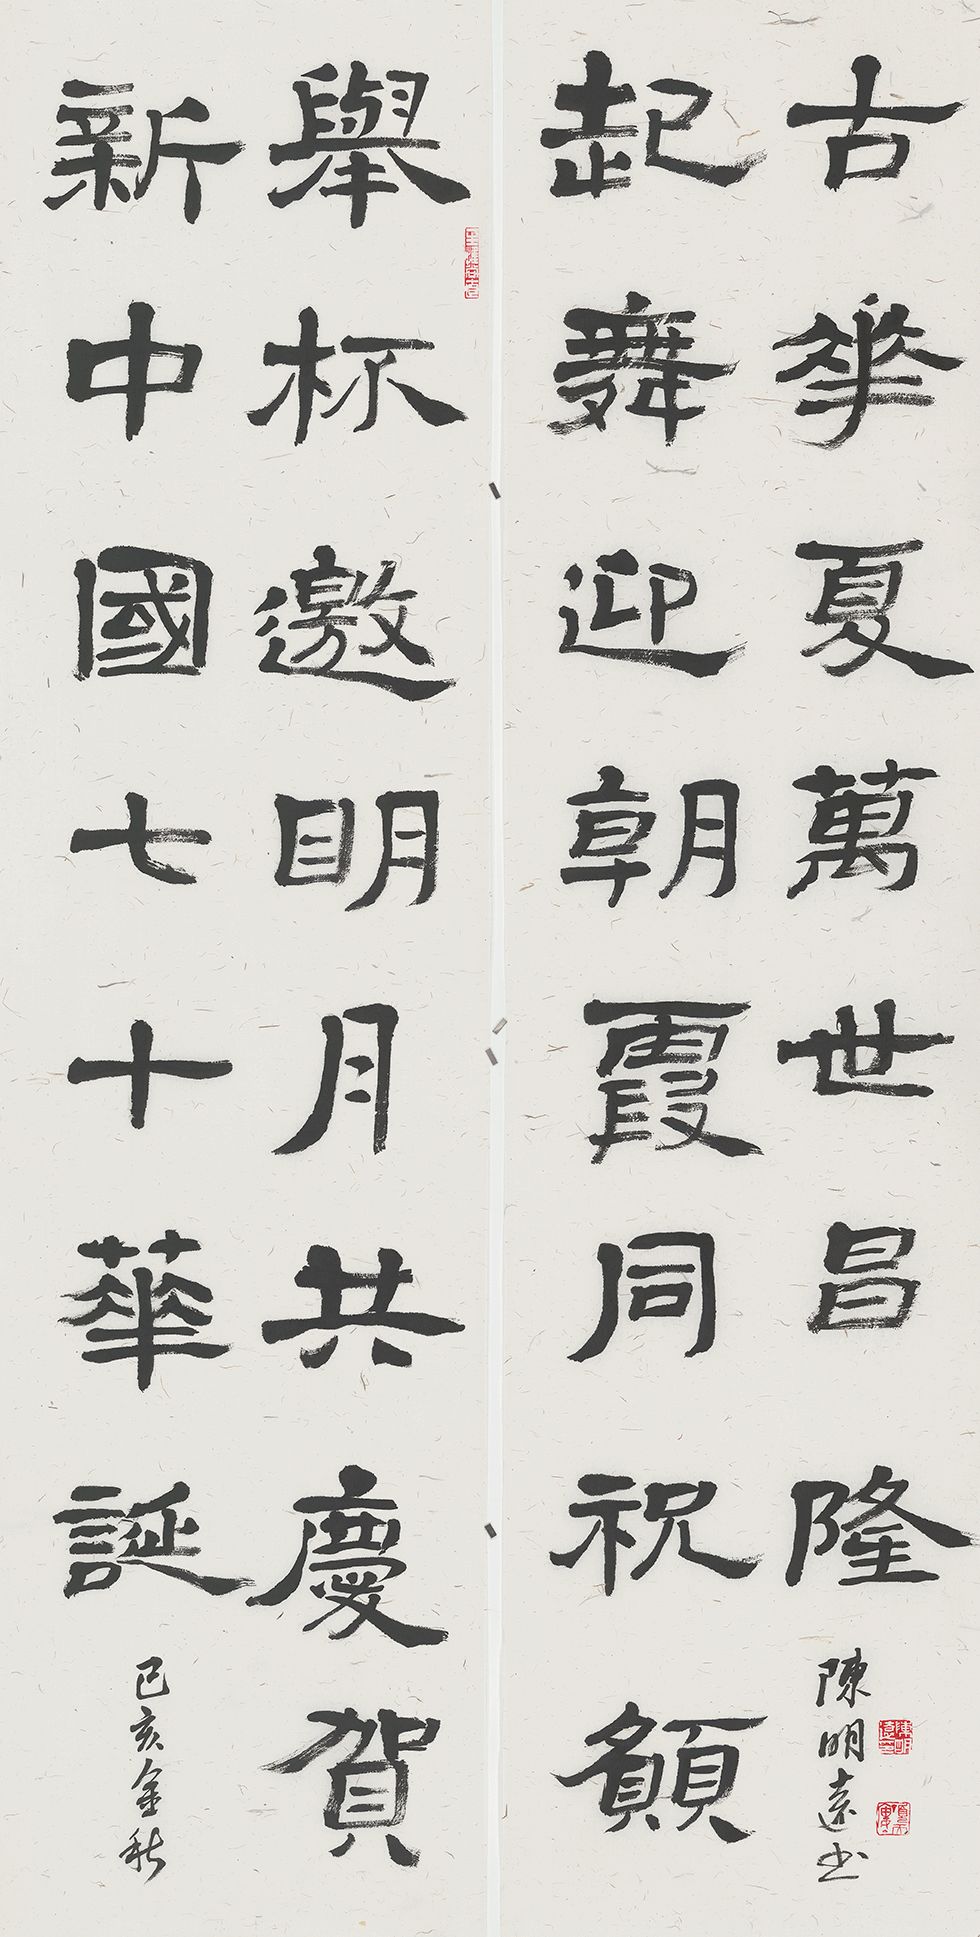 舉杯邀明月共慶賀
新中國七十華誕
己亥金秋
起舞迎朝霞同祝願
古華夏萬世昌隆
陳明遠書